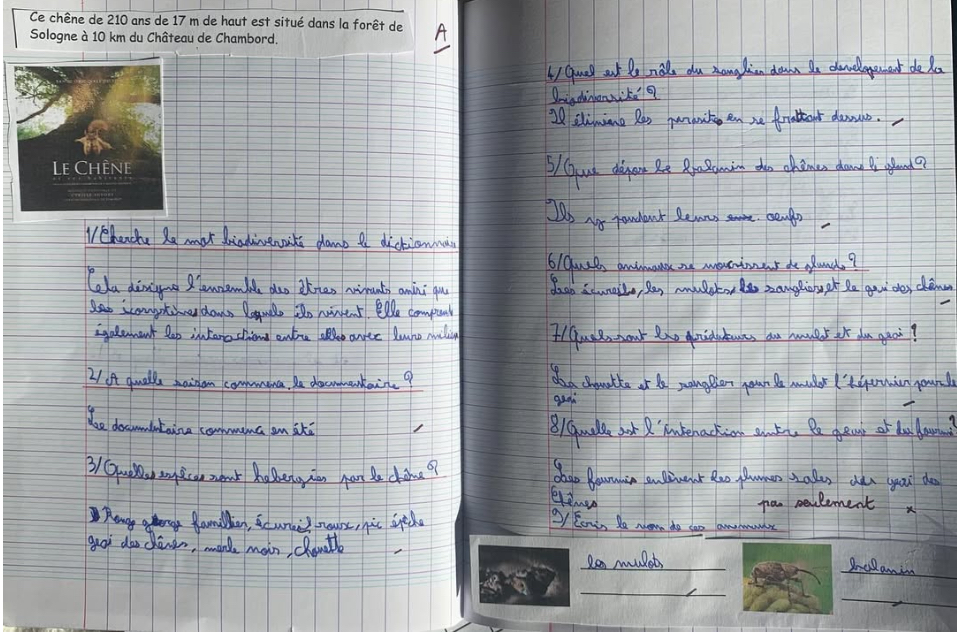 Ce chêne de 210 ans de 17 m de haut est situé dans la forêt de
Sologne à 10 km du Château de Chambord.
A
LE CHÊNE
1/ Cherche le mot biodiversité dans le dictionnaire
Cela désigne l'ensemble des êtres vivants ainsi que
les écosystèmes dans lequels ils vivent. Elle comprend
également les interactions entre elles avec leurs milieu
2/ A quelle saison commence le documentaire ?
Le documentaire commence en été
3/ Quelles espèces sont hebergées par le chêne ?
Rouge gorge familier, écureil roux, pic épeiche
geai des chênes, merle noir, chouette
4/ Quel est le rôle du sanglier dans le developement de la
biodiversité ?
Il élimine les parasites en se frottant dessus.
5/ Que dépose le balanin des chênes dans le gland ?
Ils y pondent leurs oeufs
6/ Quels animaux se nourrissent de glands ?
Les écureils, les mulots, les sangliers, et le geai des chênes
7/ Quels sont les prédateurs du mulot et du geai ?
La chouette et le sanglier pour le mulot l'épervier pour le
geai
8/ Quelle est l'interaction entre le geai et les fourmi ?
Les fourmis enlèvent les plumes sales des geai des
chênes
pas seulement
9/ Ecris le nom de ces animaux
les mulots
balanin